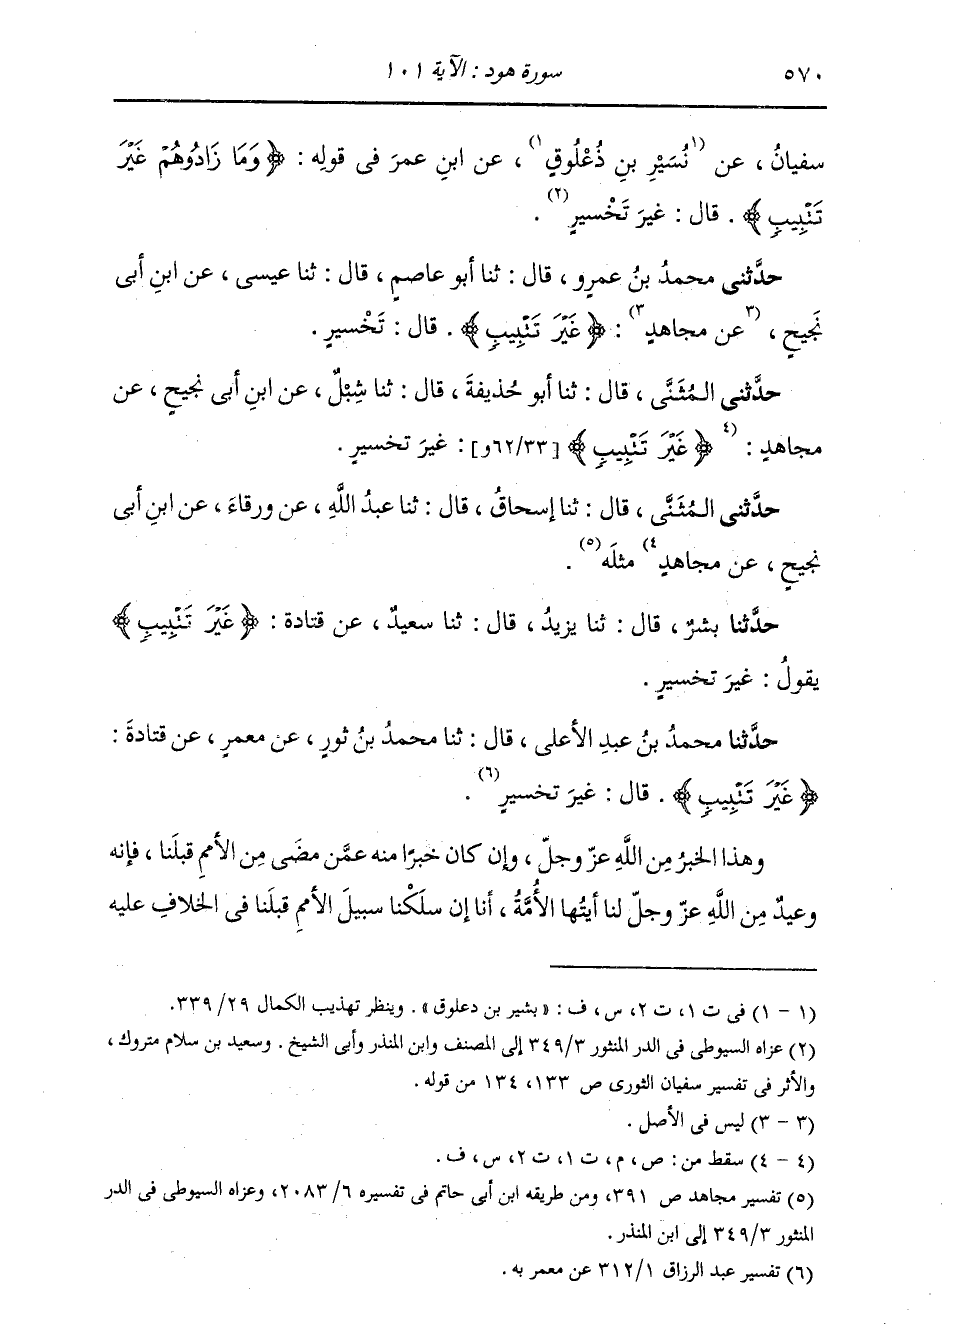 ٥٧٠
سورة هود : الآية ١٠١
سفيانُ ، عن (١نُسَيْرِ بنِ ذُعْلُوقٍ١) ، عن ابنِ عمرَ فى قولِه : ﴿ وَمَا زَادُوهُمْ غَيْرَ
تَتْبِيبٍ ﴾ . قال : غيرَ تَخْسيرٍ(٢) .
حدَّثنى محمدُ بنُ عمرٍو ، قال : ثنا أبو عاصمٍ ، قال : ثنا عيسى ، عن ابنِ أبى
نَجيحٍ ، (٣عن مجاهدٍ٣) : ﴿ غَيْرَ تَتْبِيبٍ ﴾ . قال : تَخْسيرٍ .
حدَّثنى المُثَنَّى ، قال : ثنا أبو حُذيفةَ ، قال : ثنا شِبْلٌ ، عن ابنِ أبى نجيحٍ ، عن
مجاهدٍ : (٤ ﴿ غَيْرَ تَتْبِيبٍ ﴾ [٦٢/٣٣و] : غيرَ تخسيرٍ .
حدَّثنى المُثَنَّى ، قال : ثنا إسحاقُ ، قال : ثنا عبدُ اللَّهِ ، عن ورقاءَ ، عن ابنِ أبى
نجيحٍ ، عن مجاهدٍ٤) مثلَه(٥) .
حدَّثنا بشرٌ ، قال : ثنا يزيدُ ، قال : ثنا سعيدٌ ، عن قتادة : ﴿ غَيْرَ تَتْبِيبٍ ﴾
يقولُ : غيرَ تخسيرٍ .
حدَّثنا محمدُ بنُ عبدِ الأعلى ، قال : ثنا محمدُ بنُ ثورٍ ، عن معمرٍ ، عن قتادةَ :
﴿ غَيْرَ تَتْبِيبٍ ﴾ . قال : غيرَ تخسيرٍ(٦) .
وهذا الخبرُ مِن اللَّهِ عزّ وجلّ ، وإن كان خبرًا منه عمَّن مضَى مِن الأممِ قبلَنا ، فإنه
وعيدٌ مِن اللَّهِ عزّ وجلّ لنا أيتُها الأُمَّةُ ، أنا إن سلَكْنا سبيلَ الأممِ قبلَنا فى الخلافِ عليه
(١ - ١) فى ت ١، ت ٢، س، ف : « بشير بن دعلوق » . وينظر تهذيب الكمال ٢٩/ ٣٣٩.
(٢) عزاه السيوطى فى الدر المنثور ٣٤٩/٣ إلى المصنف وابن المنذر وأبى الشيخ . وسعيد بن سلام متروك ،
والأثر فى تفسير سفيان الثورى ص ١٣٣، ١٣٤ من قوله .
(٣ - ٣) ليس فى الأصل .
(٤ - ٤) سقط من : ص، م، ت ١، ت ٢، س، ف .
(٥) تفسير مجاهد ص ٣٩١، ومن طريقه ابن أبى حاتم فى تفسيره ٦/ ٢٠٨٣، وعزاه السيوطى فى الدر
المنثور ٣٤٩/٣ إلى ابن المنذر .
(٦) تفسير عبد الرزاق ٣١٢/١ عن معمر به .